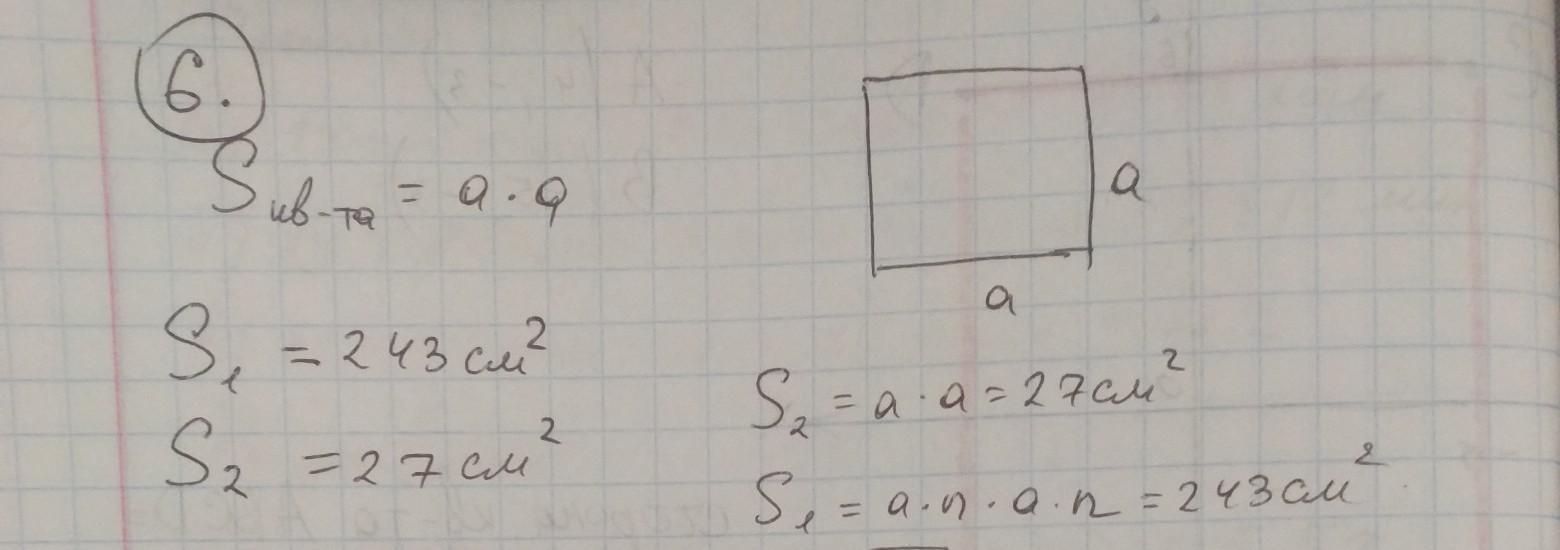 6.
S кв-та = a · a
a
a
S₁ = 243 см²
S₂ = 27 см²
S₂ = a · a = 27 см²
S₁ = a · n · a · n = 243 см²